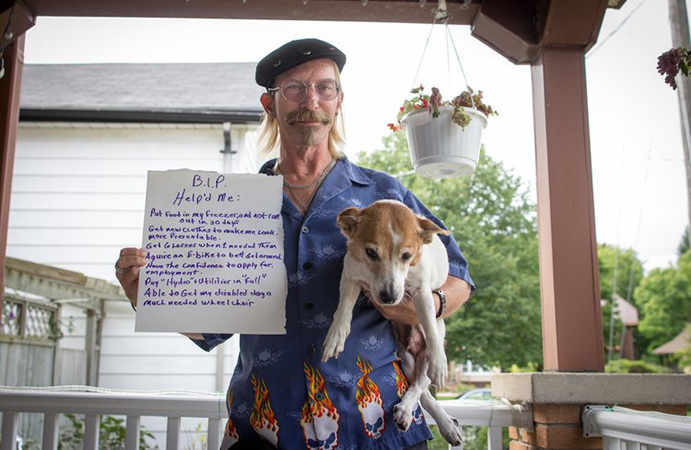 B.I.P.
Help'd Me:
Put Food in my Freezer, and not run
out in 30 days
Get new clothes to make me look
more Presentable.
Get Glasses when I needed Them
Aquire an E-bike to get around
Have the Confidence to apply for
employment.
Pay "Hydro" + Utilities in "Full"
Able to Get my disabled dog a
much needed wheelchair